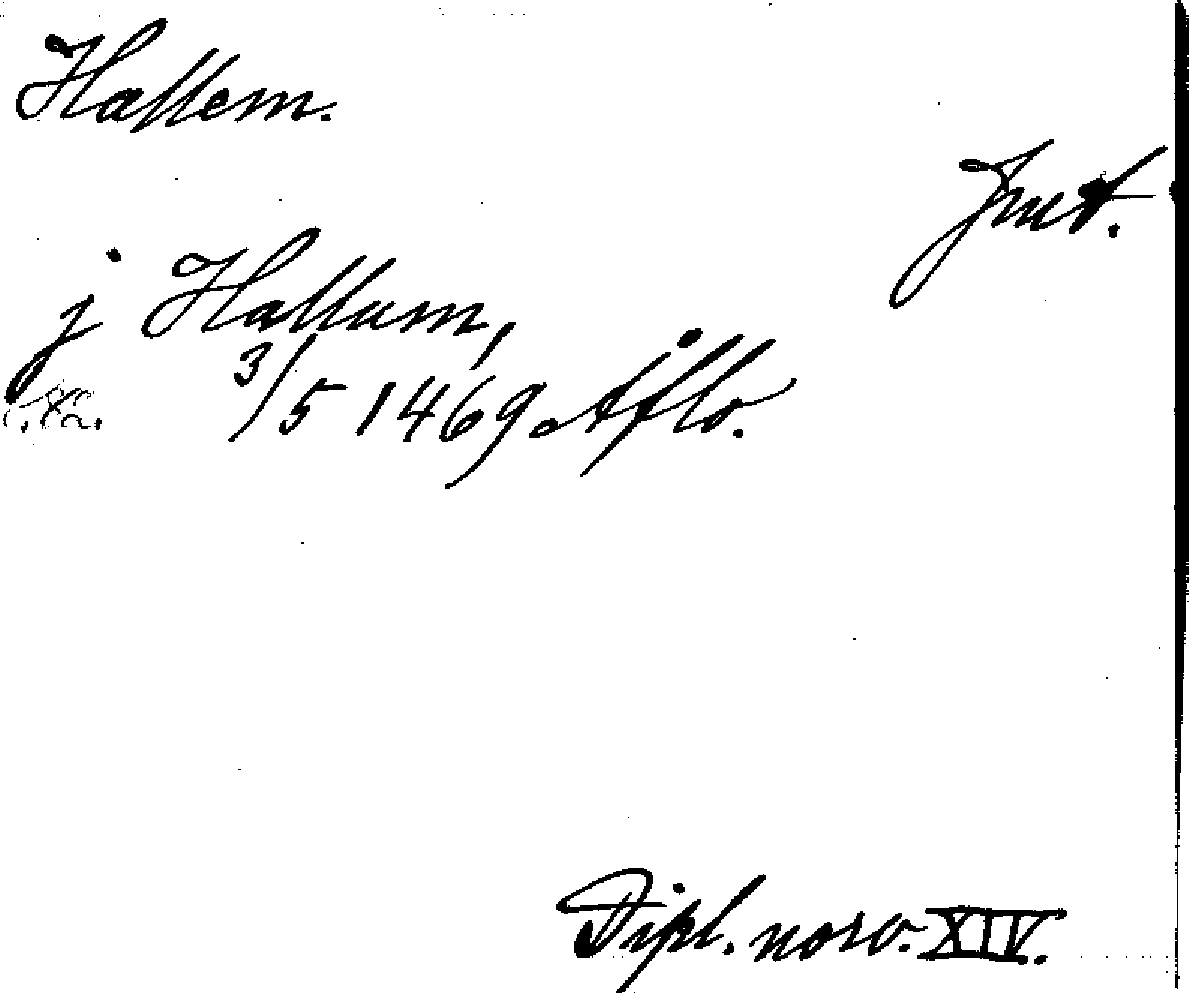 Hallem.
Jmt.
j Hallum,
3/5 1469 Aflo.
s. 82.
Dipl. norv. XIV.